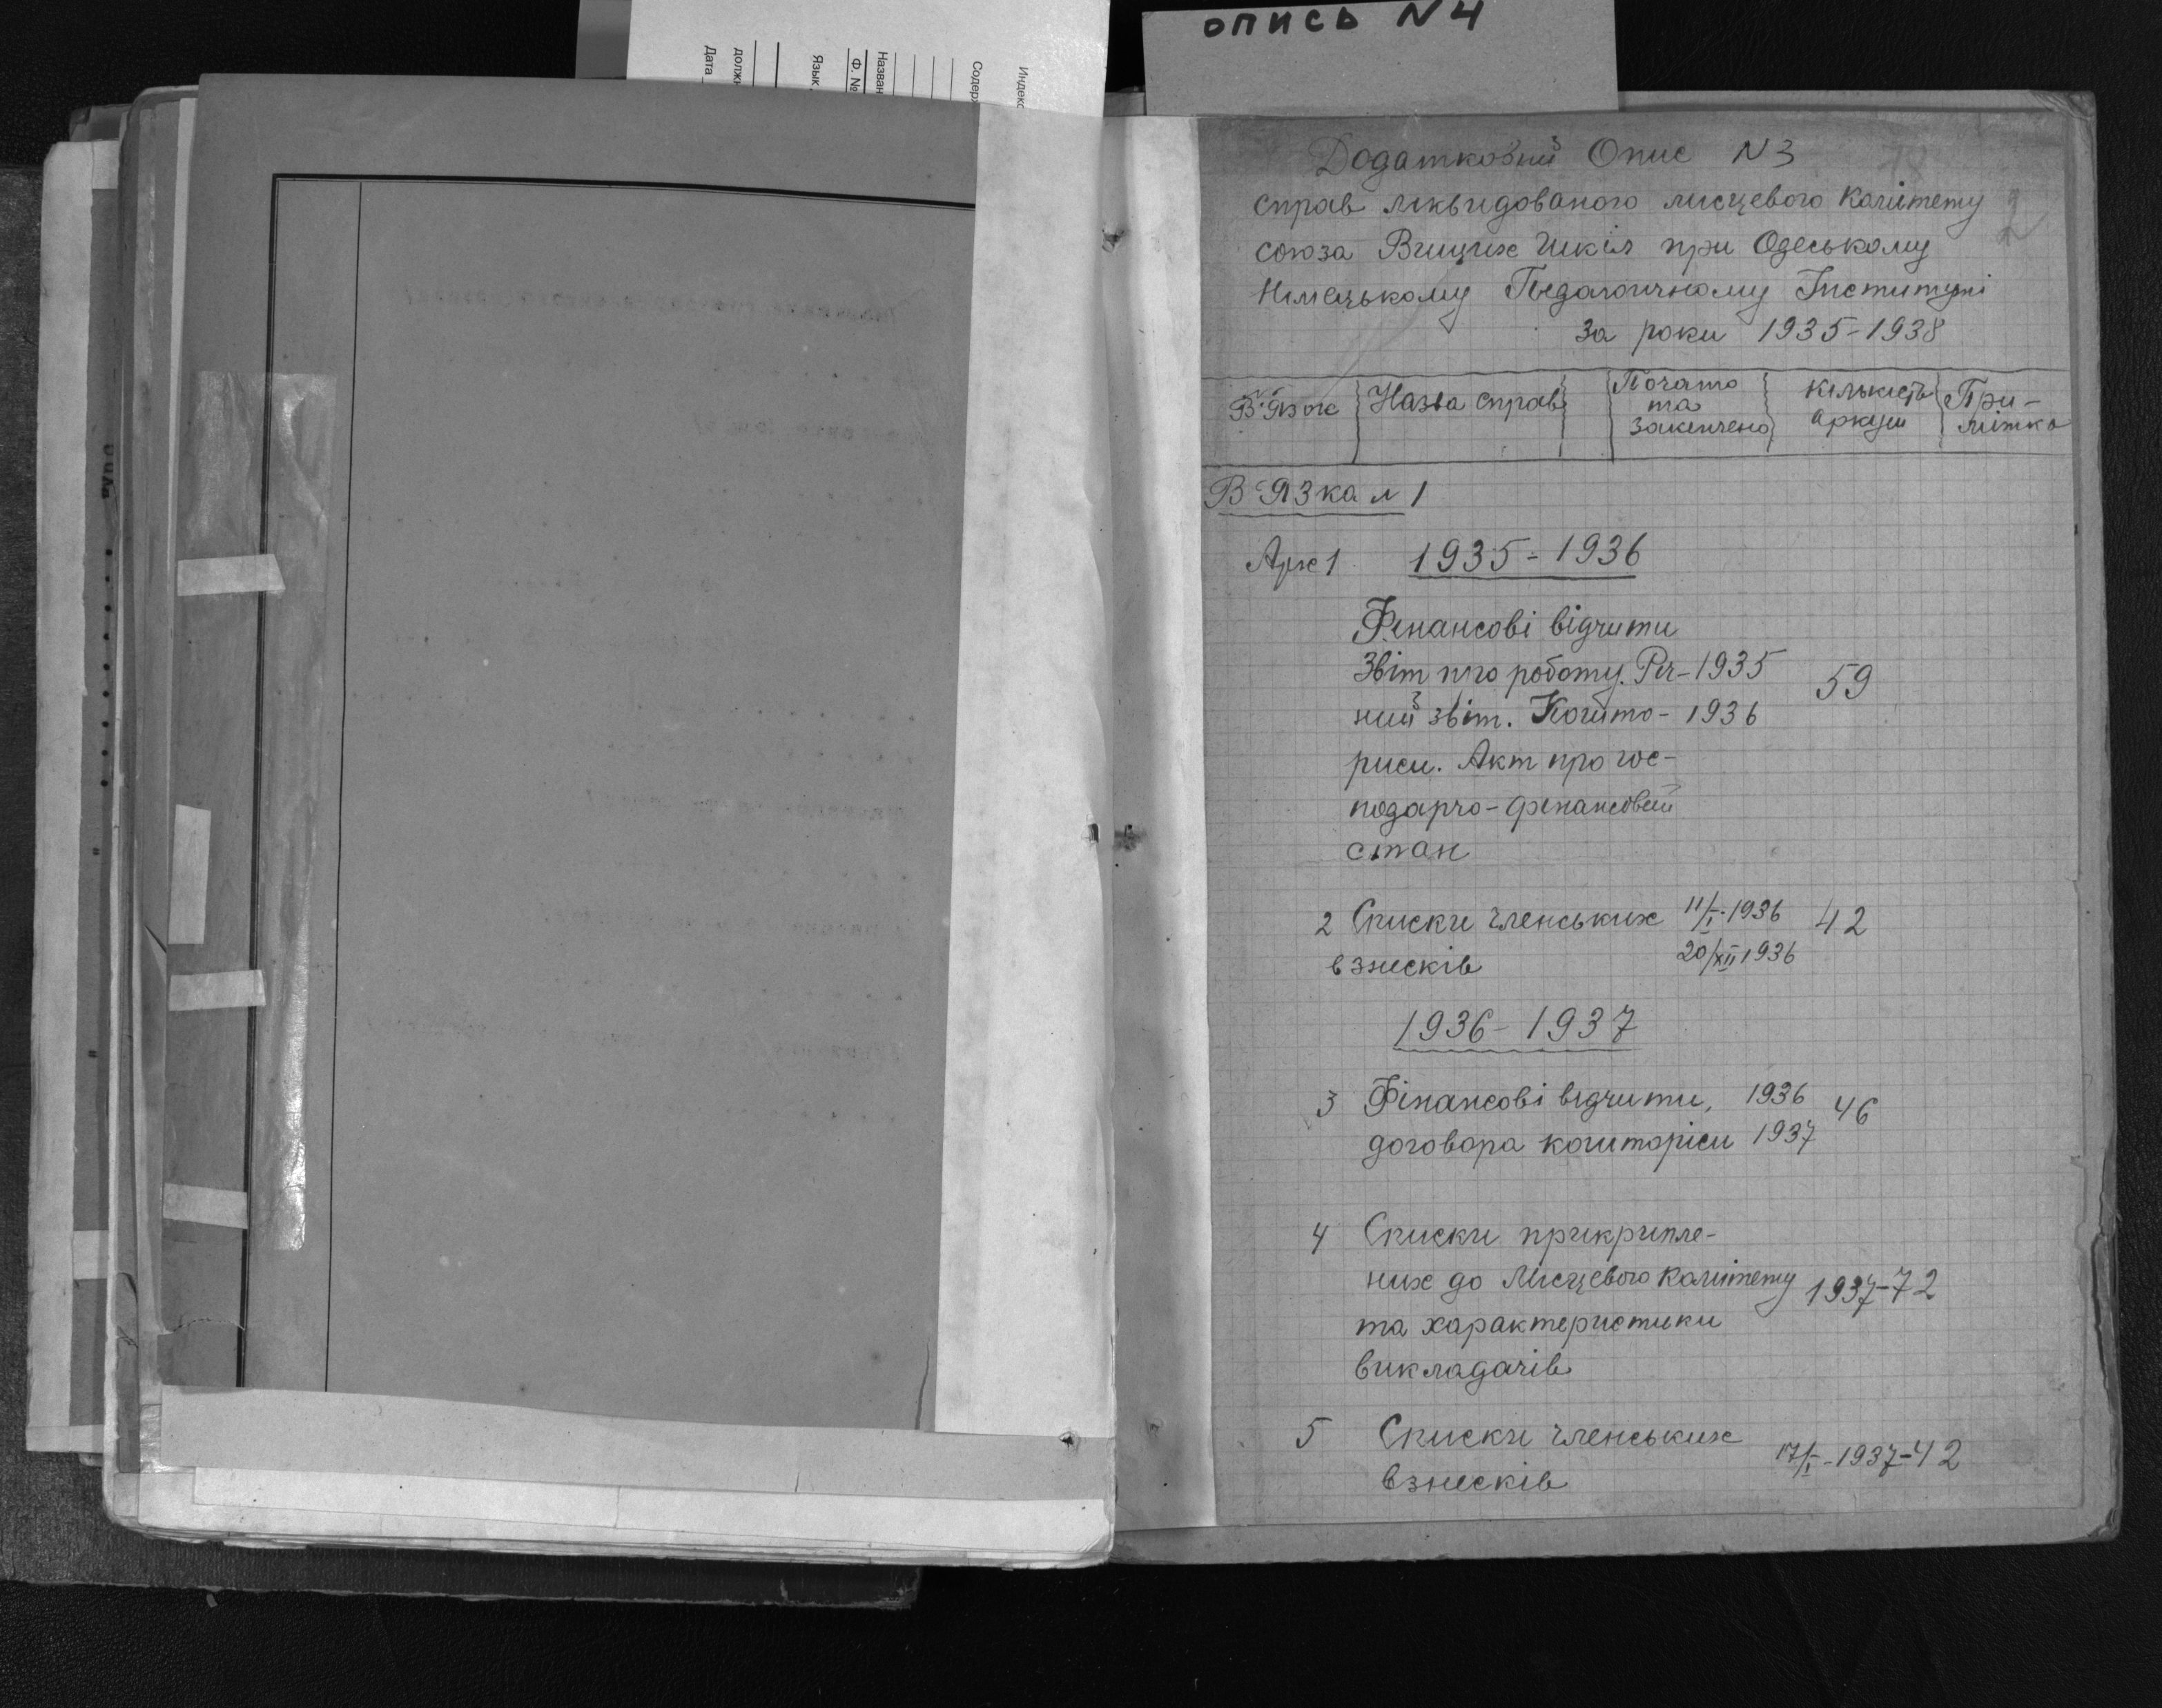 опись N4
Индекс
Содерж
Назван
Ф. №
Язык
должн
Дата
Додатковий Опис N 3
справ ліквидованого мисцевого комітету
союза Вищих Шкіл при Одеському
Німецькому Педагогичному Інституті
за роки 1935-1938
В'язок
Назва справ
Почато
та
закинчено
Кількість
аркуш
При-
мітка
В'Язка N 1
Арх 1 1935-1936
Фінансові відчити
Звіт про роботу. Річ- 1935 59
ний звіт. Кошто- 1936
риси. Акт про гос-
подарчо-фінансовий
стан
2 Списки членських 11/I-1936 42
взнесків 20/XII 1936
1936-1937
3 Фінансові відчити, 1936 46
договора кошторіси 1937
4 Списки прикрипле-
них до Мисцевого комітету 1937-72
та характеристики
викладачів
5 Списки членських 17/I-1937-42
взнесків